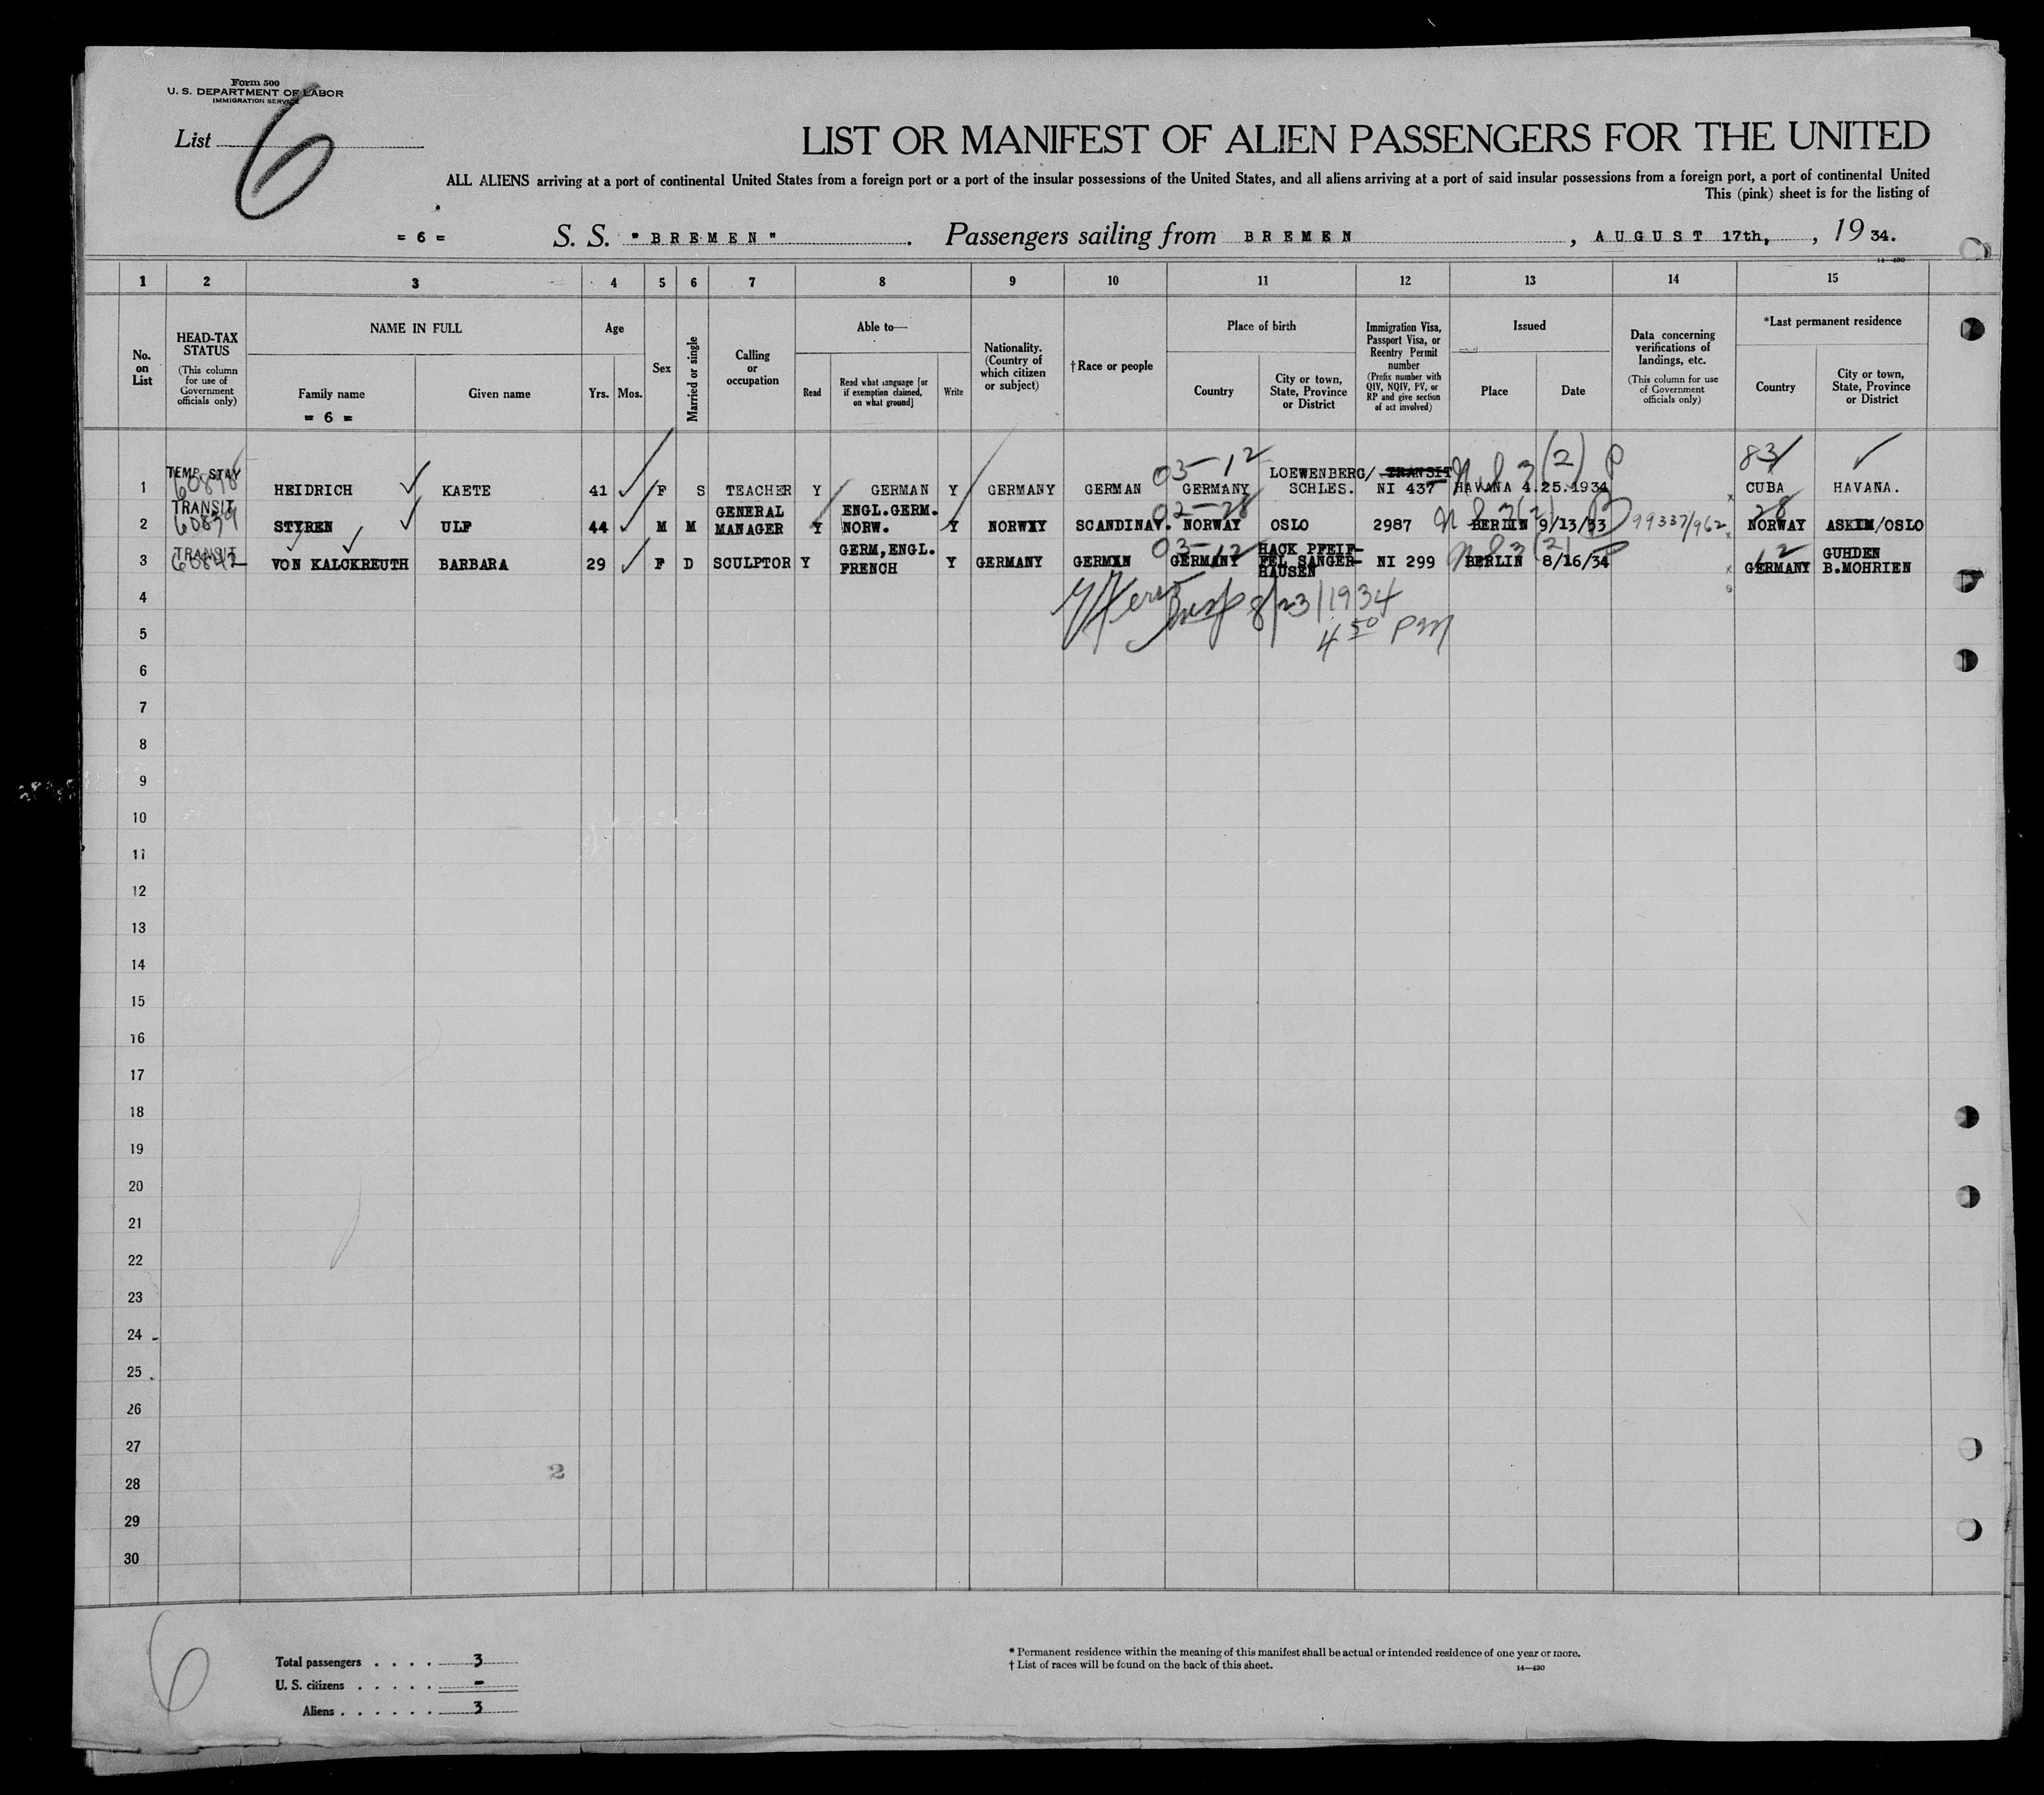 Form 500
U. S. DEPARTMENT OF LABOR
IMMIGRATION SERVICE
List 6
LIST OR MANIFEST OF ALIEN PASSENGERS FOR THE UNITED
ALL ALIENS arriving at a port of continental United States from a foreign port or a port of the insular possessions of the United States, and all aliens arriving at a port of said insular possessions from a foreign port, a port of continental United
This (pink) sheet is for the listing of
= 6 = S. S. "BREMEN". Passengers sailing from BREMEN, AUGUST 17th, , 19 34.
14—430
1 2 3 4 5 6 7 8 9 10 11 12 13 14 15
No. on List
HEAD-TAX STATUS
(This column for use of Government officials only)
NAME IN FULL
Family name
= 6 =
Given name
Age
Yrs. Mos.
Sex
Married or single
Calling or occupation
Able to—
Read
Read what language [or if exemption claimed, on what ground]
Write
Nationality. (Country of which citizen or subject)
†Race or people
Place of birth
Country
City or town, State, Province or District
Immigration Visa, Passport Visa, or Reentry Permit number
(Prefix number with QIV, NQIV, PV, or RP and give section of act involved)
Issued
Place
Date
Data concerning verifications of landings, etc.
(This column for use of Government officials only)
*Last permanent residence
Country
City or town, State, Province or District
03-12 (2) P 83
TEMP. STAY LOEWENBERG/ TRANSIT
1 HEIDRICH KAETE 41 F S TEACHER Y GERMAN Y GERMANY GERMAN GERMANY SCHLES. NI 437 HAVANA 4.25.1934 CUBA HAVANA.
TRANSIT GENERAL ENGL.GERM. 02-28 28
2 60839 STYREN ULF 44 M M MANAGER Y NORW. Y NORWAY SCANDINAV. NORWAY OSLO 2987 BERLIN 9/13/33 99337/962 NORWAY ASKIM/OSLO
TRANSIT GERM,ENGL. 03-12 HACK PFEIF- 12 GUHDEN
3 60842 VON KALCKREUTH BARBARA 29 F D SCULPTOR Y FRENCH Y GERMANY GERMAN GERMANY FEL SANGER- NI 299 BERLIN 8/16/34 GERMANY B.MOHRIEN
HAUSEN
4 8/23/1934
5 4 50 PM
6
7
8
9
10
11
12
13
14
15
16
17
18
19
20
21
22
23
24
25
26
27
2
28
29
30
6
Total passengers . . . . 3
U. S. citizens . . . . . -
Aliens . . . . . . 3
* Permanent residence within the meaning of this manifest shall be actual or intended residence of one year or more.
† List of races will be found on the back of this sheet.
14—430